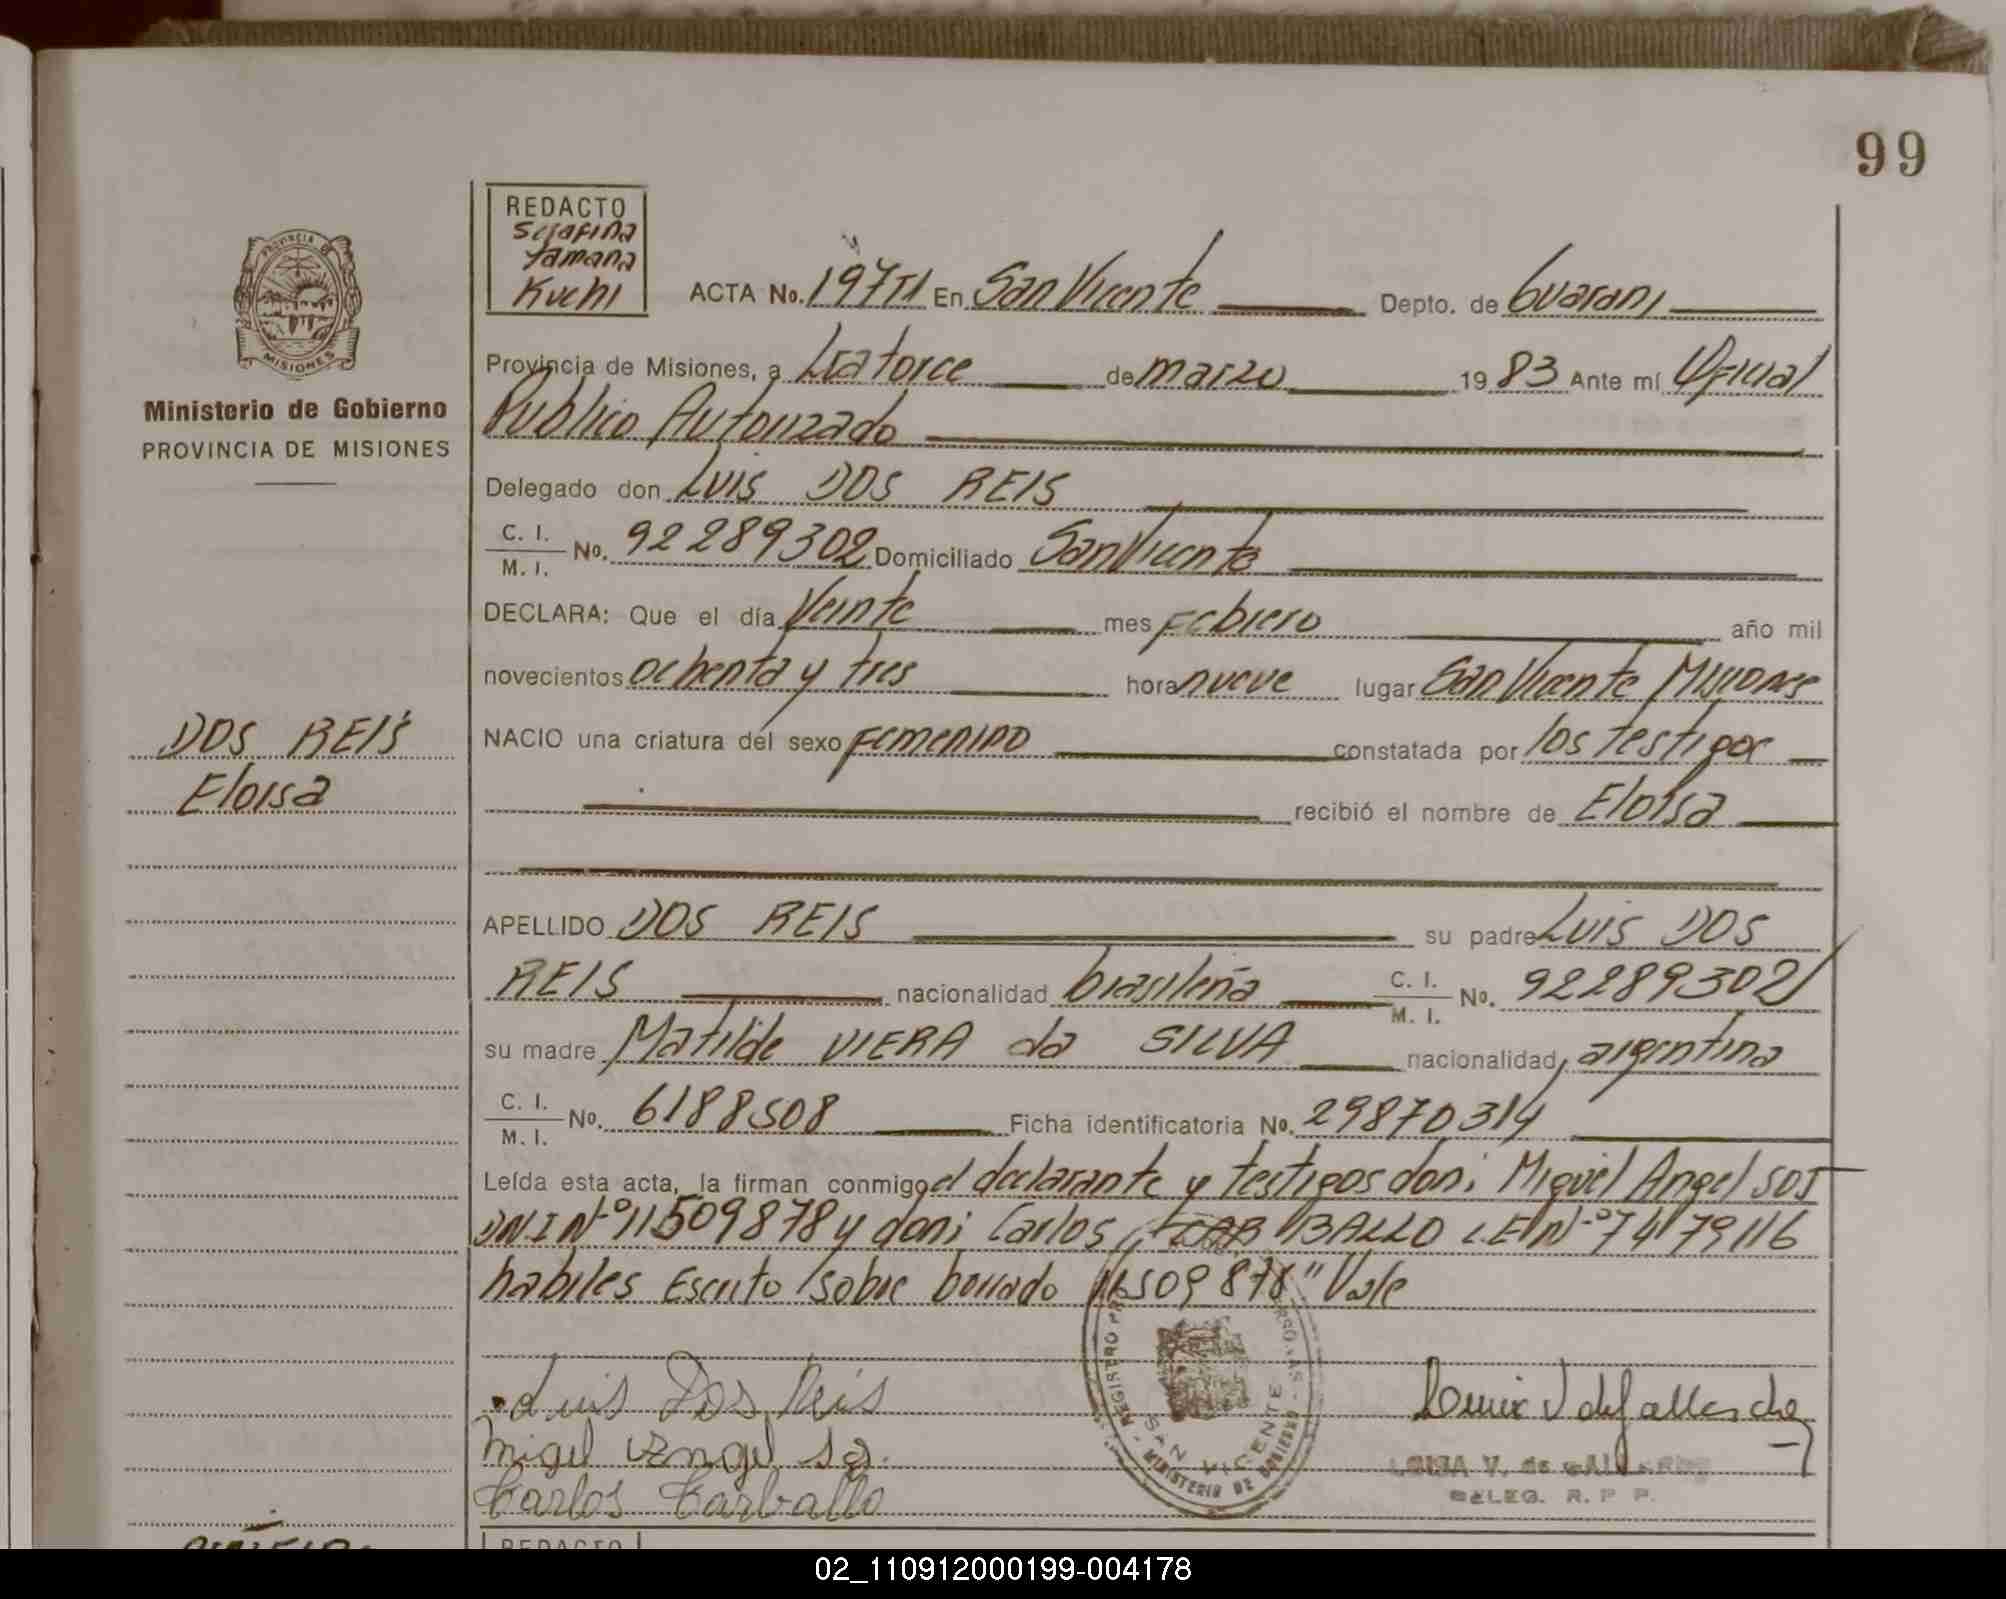 99
REDACTO
Serafina
Tamana
Kuchi
ACTA No. 197 TI En San Vicente Depto. de Guarani
Provincia de Misiones, a Catorce de marzo 1983 Ante mí Oficial
Publico Autorizado
Delegado don Luis DOS REIS
C. I. / M. I. No. 92289302 Domiciliado San Vicente
DECLARA: Que el día Veinte mes Febrero año mil
novecientos ochenta y tres hora nueve lugar San Vicente Misiones
NACIO una criatura del sexo Femenino constatada por los testigos
recibió el nombre de Eloisa
APELLIDO DOS REIS su padre Luis DOS
REIS nacionalidad brasileña C. I. / M. I. No. 92289302
su madre Matilde VIERA da SILVA nacionalidad argentina
C. I. / M. I. No. 6188508 Ficha identificatoria No. 29870314
Leída esta acta, la firman conmigo el declarante y testigos don: Miguel Angel SOS
DNI Nº 11509878 y don: Carlos CARBALLO L.E Nº 7479116
habiles Escrito sobre borrado "11509878" Vale
Luis Dos Reis
Migel Angel
Carlos Carballo
REGISTRO
SAN VICENTE
MINISTERIO DE GOBIERNO
DELEG. R. P P.
PROVINCIA DE
MISIONES
Ministerio de Gobierno
PROVINCIA DE MISIONES
DOS REIS
Eloisa
REDACTO
02_110912000199-004178